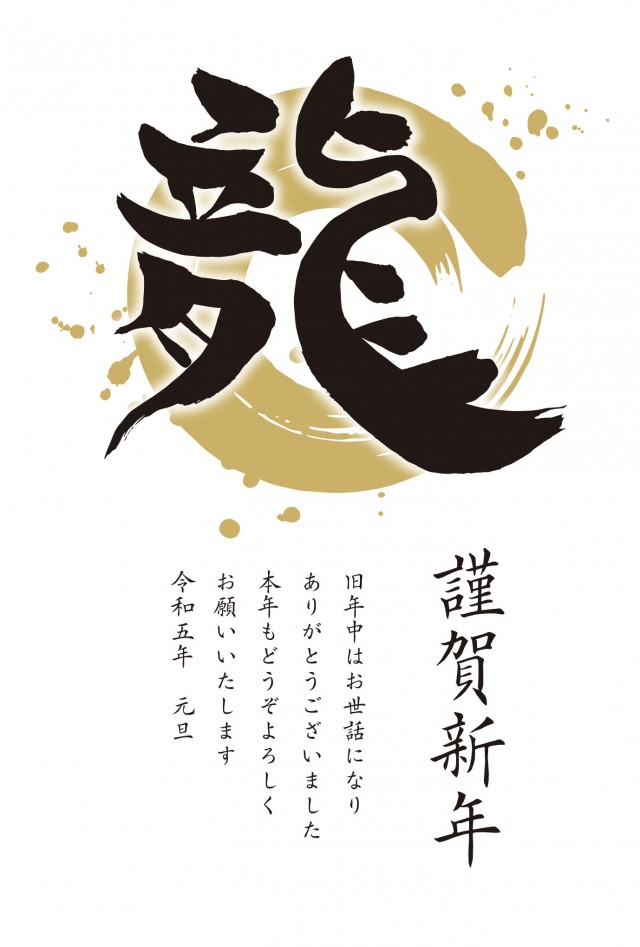 龍
謹賀新年
旧年中はお世話になり
ありがとうございました
本年もどうぞよろしく
お願いいたします
令和五年　元旦